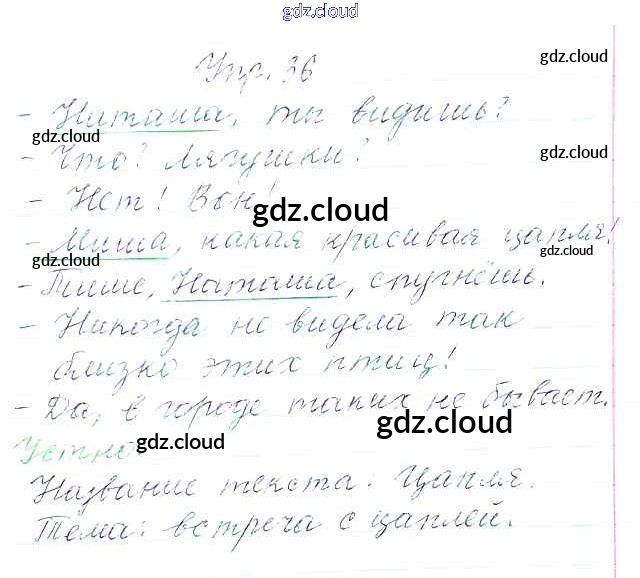 gdz.cloud
Упр. 36
gdz.cloud
- Наташа, ты видишь?
gdz.cloud
- Что? Лягушки?
gdz.cloud
- Нет! Вон!
gdz.cloud
- Миша, какая красивая цапля!
gdz.cloud
gdz.cloud
- Тише, Наташа, спугнёшь.
- Никогда не видела так
близко этих птиц!
- Да, в городе таких не бывает.
gdz.cloud
Устно
gdz.cloud
Название текста: Цапля.
Тема: встреча с цаплей.